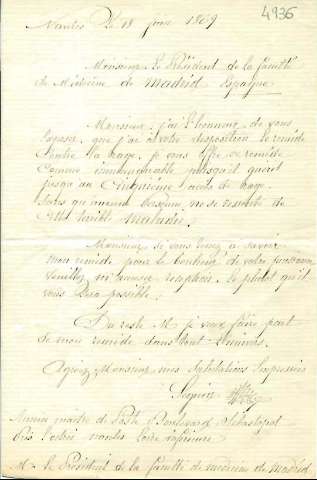 4936
Nantes le 18 juin 1869
Monsieur le Président de la faculté
de Médecine de Madrid Espagne
Monsieur, j'ai l'honneur de vous
exposer que j'ai à votre disposition le remède
contre la rage, je vous offre ce remède
comme immanquable puisqu'il guérit
jusqu'au Cinquième accès de rage.
sans que aucune personne ne se ressente de
cette terrible maladie.
Monsieur si vous tenez à savoir
mon remède pour le bonheur de votre
veuillez m'accuser réception le plutôt qu'il
vous sera possible.
Du reste je veux faire part
de mon remède dans tout l'univers.
Agréez Monsieur mes Salutations Empressées
Seguin
Ancien maître de Poste Boulevard Sébastopol
près l'octroi nantes Loire inférieure
M. le Président de la faculté de médecine de Madrid